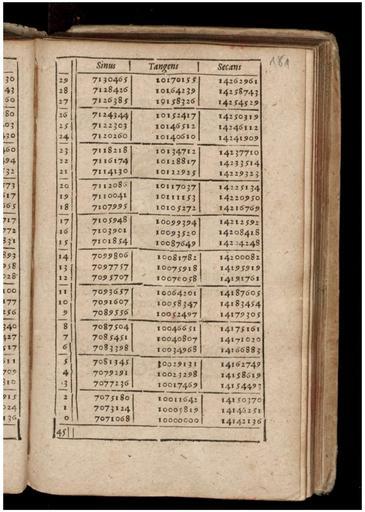 181
Sinus | Tangens | Secans
29 7130465 10170155 14262961
28 7128426 10164239 14258743
27 7126385 19158326 14254529
26 7124344 10152417 14250319
25 7122303 10146512 14246112
24 7120260 10140610 14241909
23 7118218 10134712 14237710
22 7116174 10128817 14233514
21 7114130 10122925 14229323
20 7112086 10117037 14225134
19 7110041 10111153 14220950
18 7107995 10105272 14216769
17 7105948 10099394 14212592
16 7103901 10093520 14208418
15 7101854 10087649 14204248
14 7099806 10081782 14200082
13 7097757 10075918 14195919
12 7095707 10070058 14191761
11 7093657 10064201 14187605
10 7091607 10058347 14183454
9 7089556 10052497 14179305
8 7087504 10046651 14175161
7 7085451 10040807 14171020
6 7083398 10034968 14166883
5 7081345 10029131 14162749
4 7079291 10023298 14158619
3 7077236 10017469 14154493
2 7075180 10011642 14150370
1 7073124 10005819 14146251
0 7071068 10000000 14142136
45